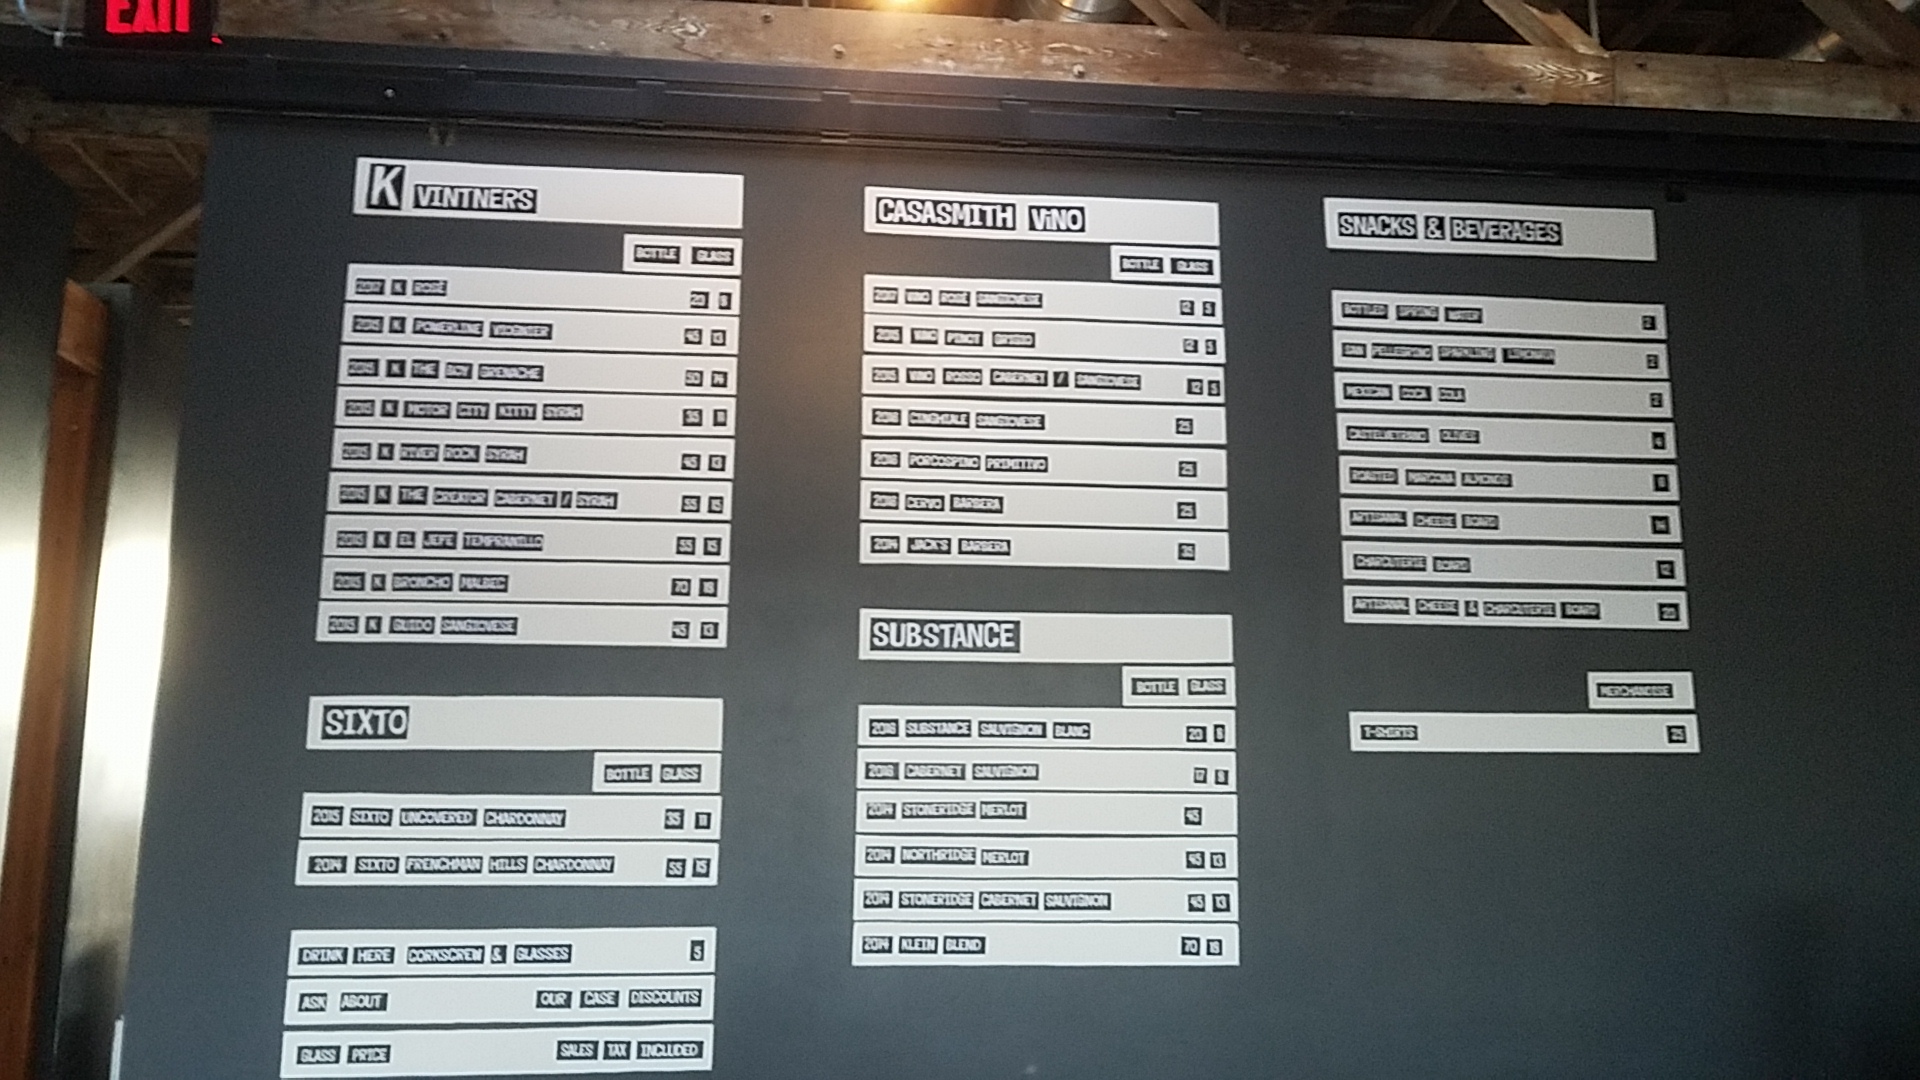 EXIT
K VINTNERS
BOTTLE GLASS
2017 K ROSÉ 20 8
2015 K POWERLINE VIOGNIER 45 13
2015 K THE BOY GRENACHE 50 14
2015 K MOTOR CITY KITTY SYRAH 35 11
2015 K RIVER ROCK SYRAH 45 13
2015 K THE CREATOR CABERNET / SYRAH 55 15
2015 K EL JEFE TEMPRANILLO 55 15
2015 K BRONCHO MALBEC 70 18
2015 K GUIDO SANGIOVESE 45 13
SIXTO
BOTTLE GLASS
2015 SIXTO UNCOVERED CHARDONNAY 35 11
2014 SIXTO FRENCHMAN HILLS CHARDONNAY 55 15
DRINK HERE CORKSCREW & GLASSES 5
ASK ABOUT OUR CASE DISCOUNTS
GLASS PRICE SALES TAX INCLUDED
CASASMITH ViNO
BOTTLE GLASS
2017 VINO ROSÉ SANGIOVESE 12 5
VINO PINOT GRIGIO 12 5
2015 VINO ROSSO CABERNET / SANGIOVESE 12 5
2016 CINGHIALE SANGIOVESE 25
2016 PORCOSPINO PRIMITIVO 25
2016 CERVO BARBERA 25
2014 JACK'S BARBERA 35
SUBSTANCE
BOTTLE GLASS
2016 SUBSTANCE SAUVIGNON BLANC 20 8
2016 CABERNET SAUVIGNON 17 8
2014 STONERIDGE MERLOT 45
2014 NORTHRIDGE MERLOT 45 13
2014 STONERIDGE CABERNET SAUVIGNON 45 13
2014 KLEIN BLEND 70 18
SNACKS & BEVERAGES
BOTTLED SPRING WATER 2
SAN PELLEGRINO SPARKLING LIMONATA 2
MEXICAN COCA COLA 2
CASTELVETRANO OLIVES 4
ROASTED MARCONA ALMONDS
ARTISANAL CHEESE BOARD 14
CHARCUTERIE BOARD 12
ARTISANAL CHEESE & CHARCUTERIE BOARD 20
MERCHANDISE
T-SHIRTS 25